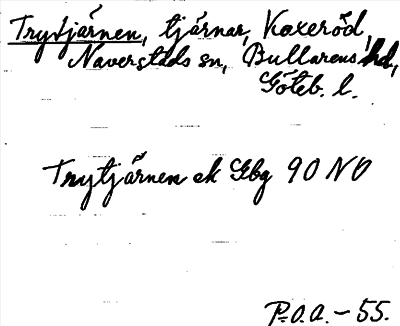 Trytjärnen, tjärnar, Koxeröd,
Naverstads sn, Bullarens hd,
Göteb. l.
Trytjärnen ek Gbg 90 NO
P.O.A. – 55.